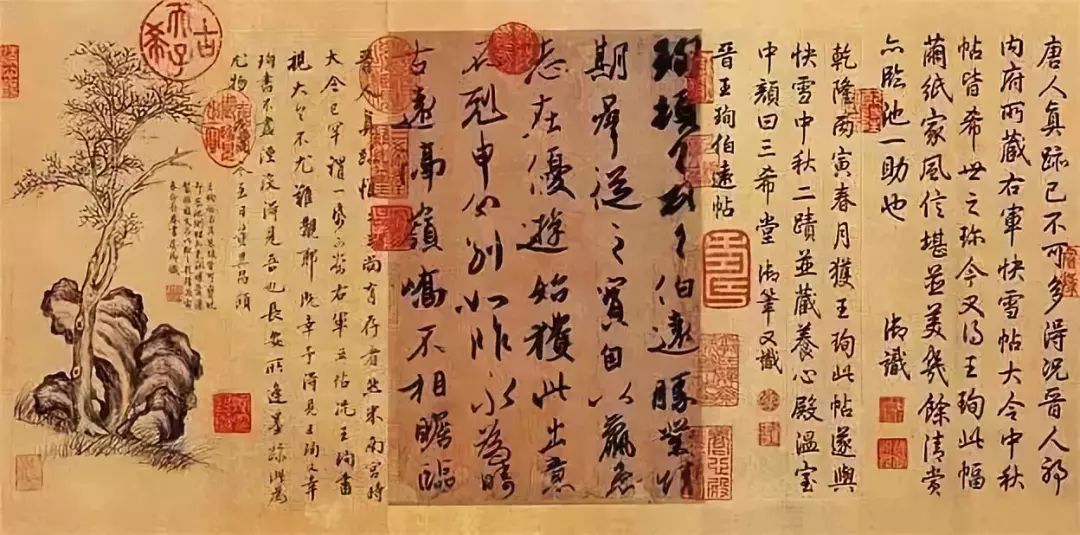 唐人真跡已不可多得況晉人耶
內府所藏右軍快雪帖大令中秋
帖皆希世之珍今又得王珣此幅
繭紙家風信堪並美幾餘清賞
亦臨池一助也 御識
乾隆丙寅春月獲王珣此帖遂與
快雪中秋二蹟並藏養心殿溫室
中顏曰三希堂 御筆又識
晉王珣伯遠帖
珣頓首頓首伯遠勝業情
期群從之寶自以羸患
志在優遊始獲此出意
不剋申分別如昨永為疇
古遠隔嶺嶠不相瞻臨
晉人真跡惟尚有存者然米南宮時
大令已罕謂一紙可當右軍五帖況王珣書
視大令不尤難覯耶既幸予得見王珣又幸
珣書不盡湮沒得見吾也長安所逢墨跡此為
尤物冬至日董其昌題
古希天子